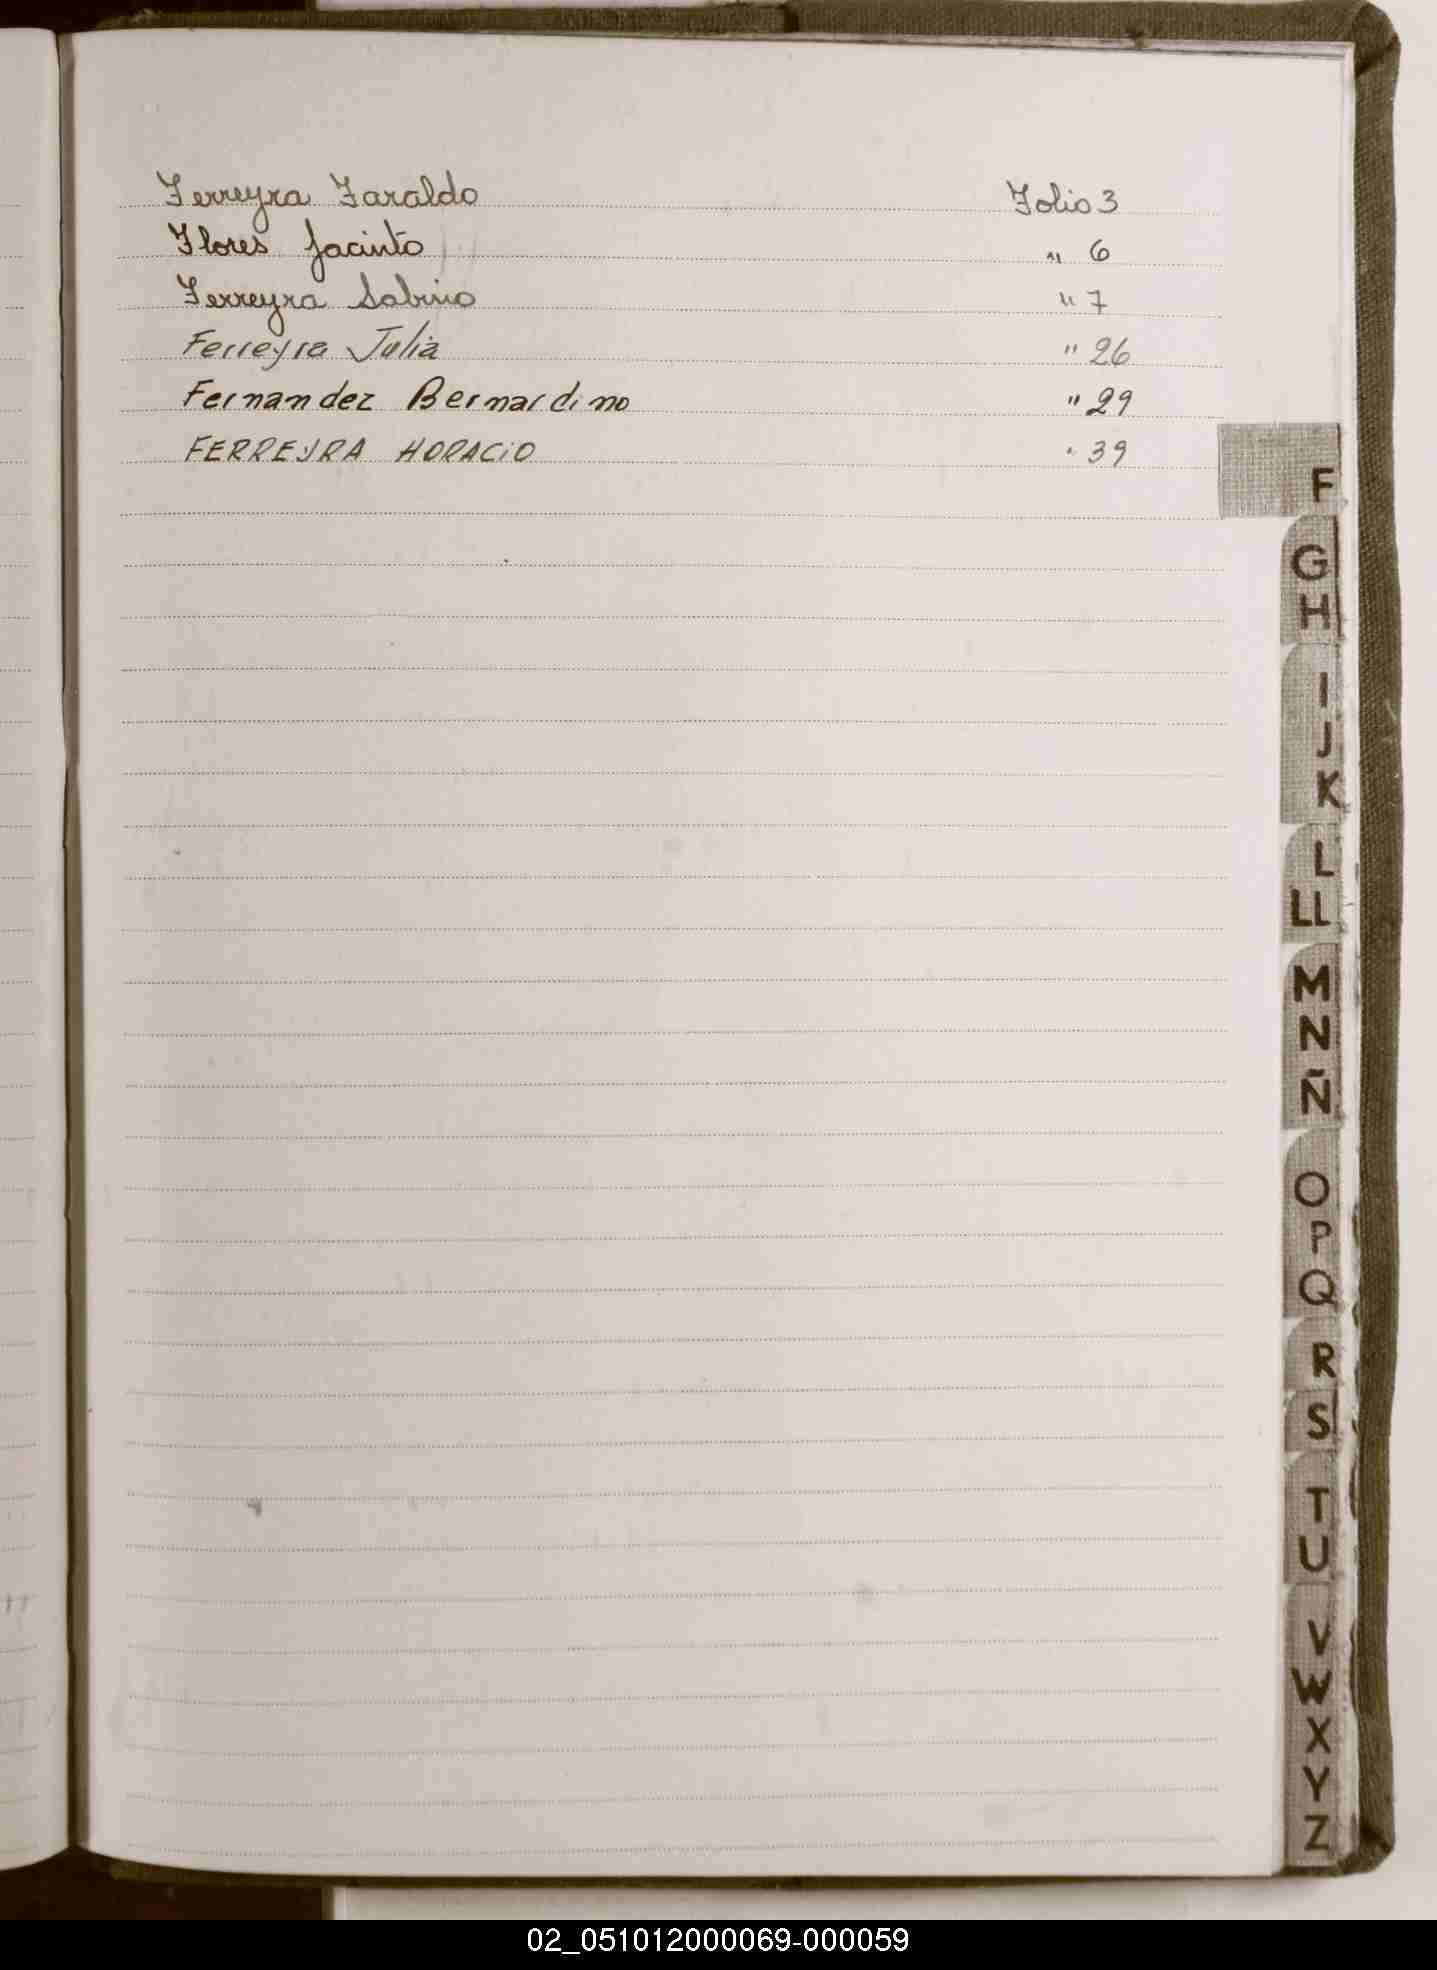 Ferreyra Faraldo Folio 3
Flores Jacinto " 6
Ferreyra Sabino " 7
Ferreyra Julia " 26
Fernandez Bernardino " 29
FERREYRA HORACIO " 39
F
G
H
I
J
K
L
LL
M
N
Ñ
O
P
Q
R
S
T
U
V
W
X
Y
Z
02_051012000069-000059